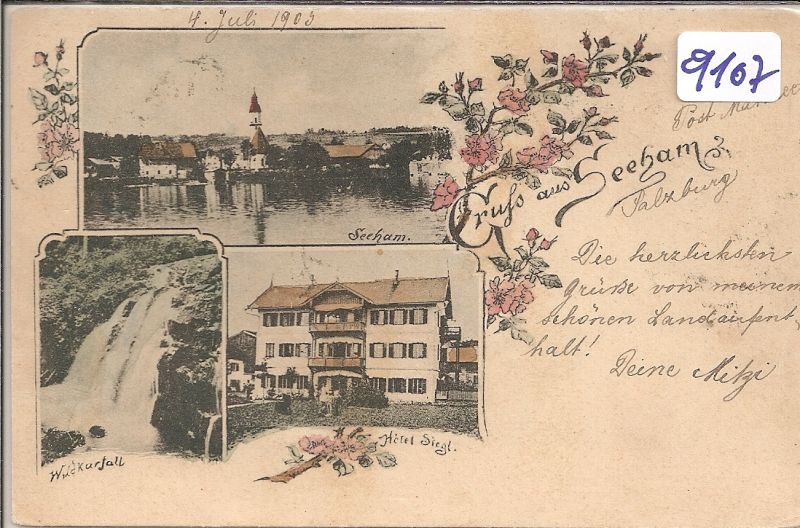 4. Juli 1903
9107
Post
Gruss aus Seeham
Salzburg
Seeham.
Die herzlichsten
Grüße von meinem
schönen Landaufent-
halt!
Deine Mitzi
Hôtel Siegl.
Wildkarfall